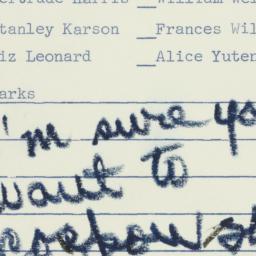 ertrude Harris __William We
tanley Karson __Frances Wil
iz Leonard __Alice Yuten
arks
'm sure yo
want to